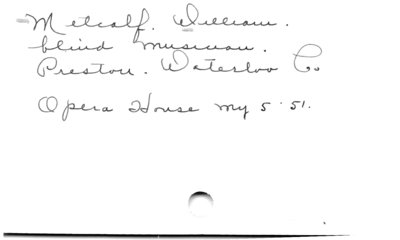 Metcalf. William.
blind musician.
Preston. Waterloo Co
Opera House my 5 '51.